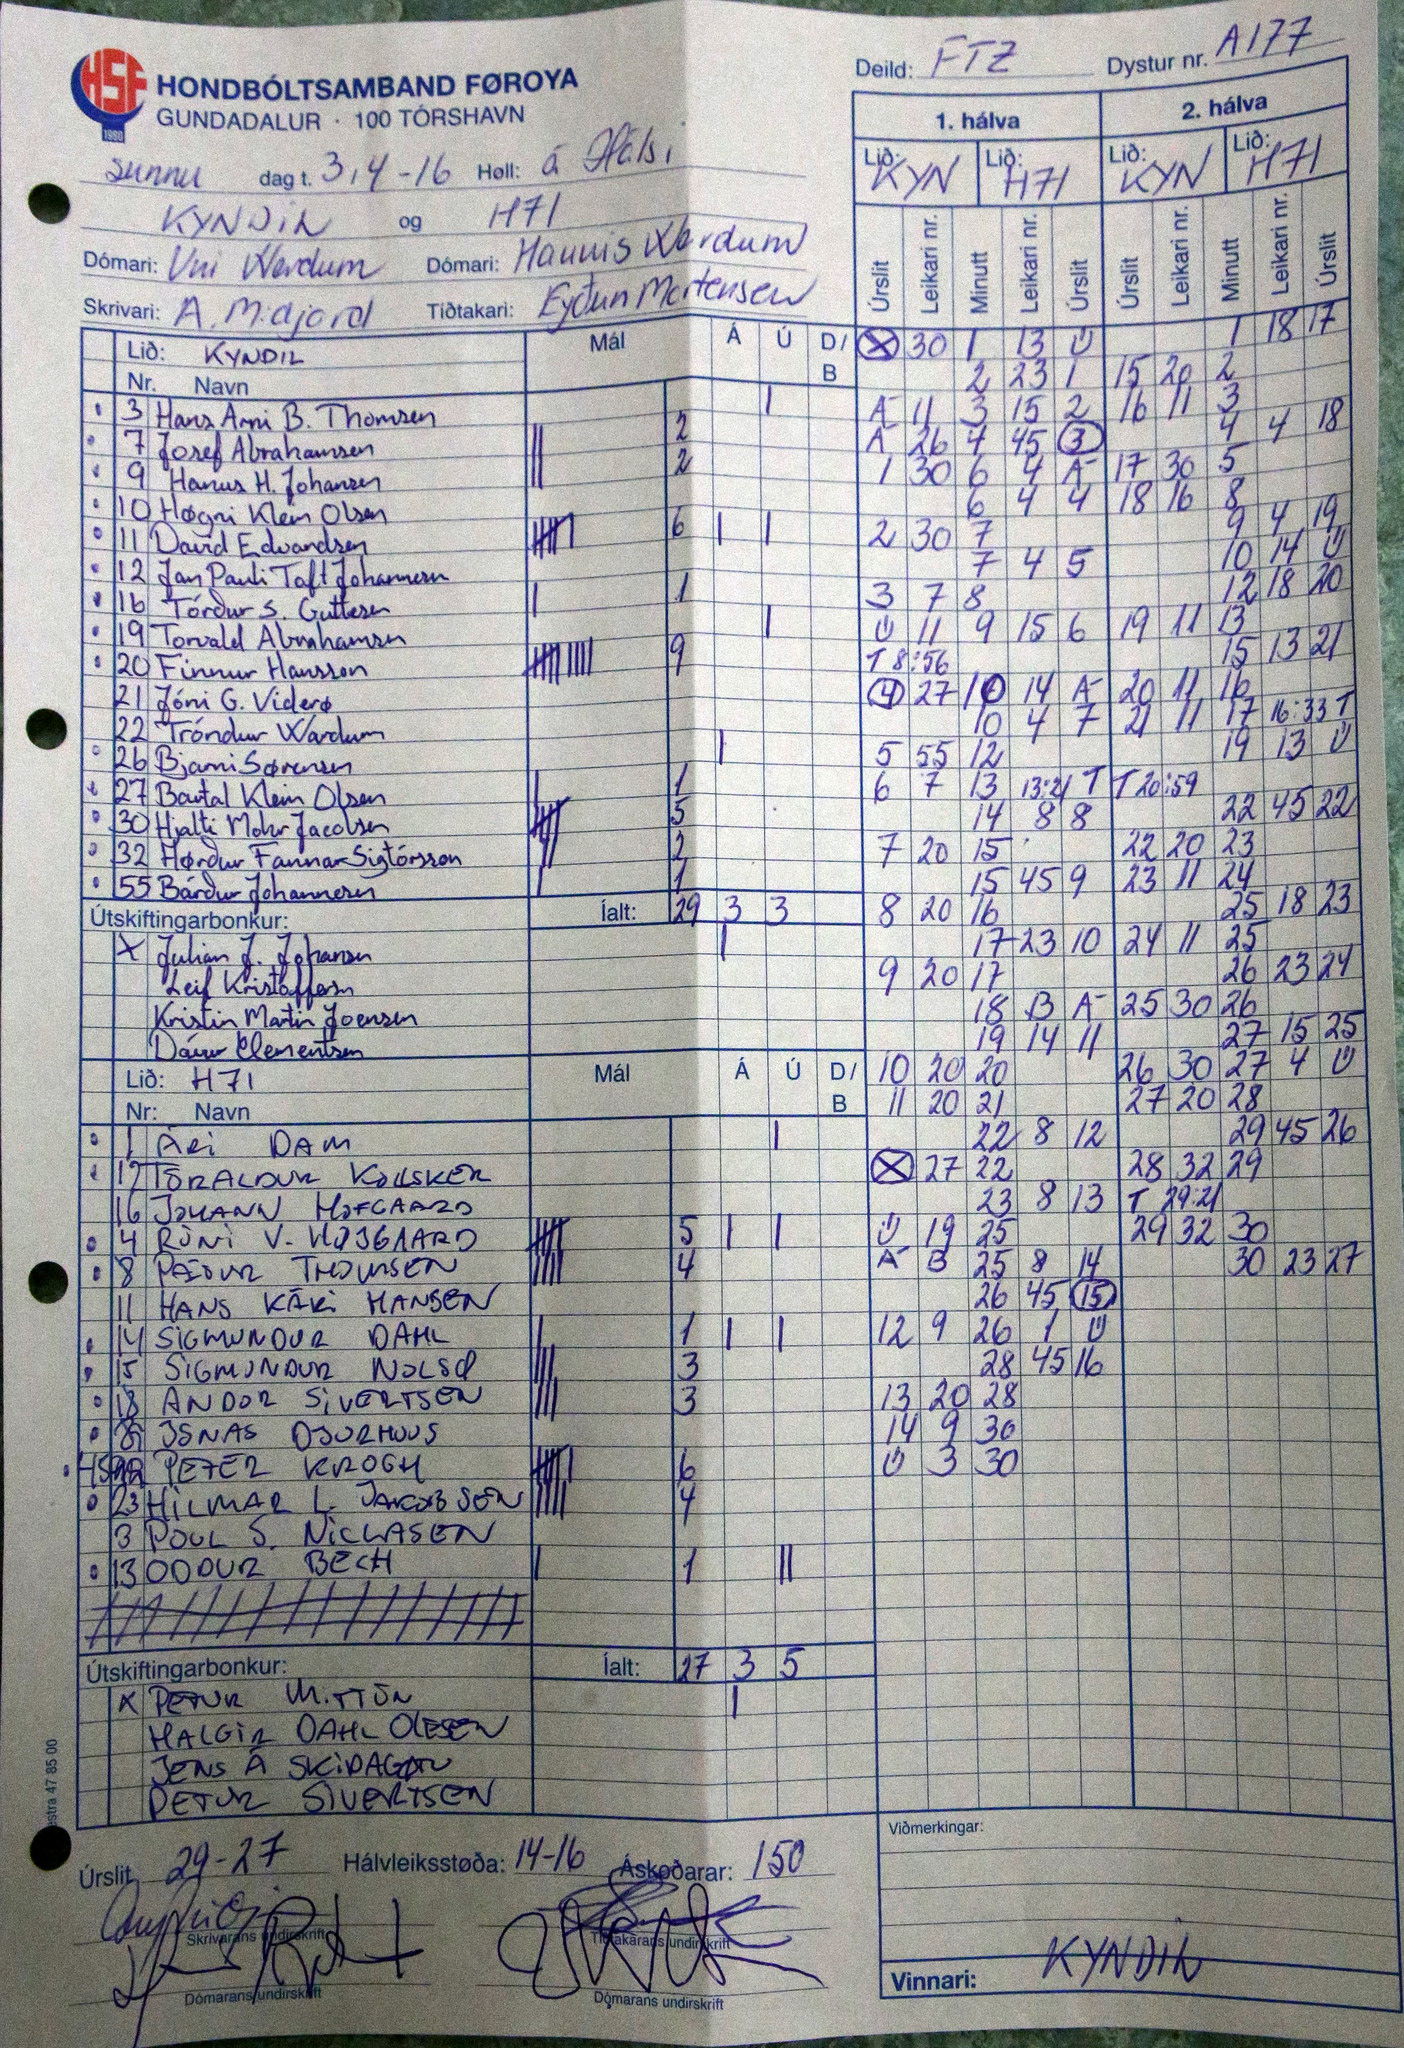 HSF
1980
HONDBÓLTSAMBAND FØROYA
GUNDADALUR · 100 TÓRSHAVN
Deild: FTZ Dystur nr. A177
sunnu dag t. 3,4-16 Høll: á Hálsi
KYNDIL og H71
Dómari: Uni Wardum Dómari: Hannis Wardum
Skrivari: A. Midjord Tíðtakari: Eyðun Mortensen
1. hálva 2. hálva
Lið: KYN Lið: H71 Lið: KYN Lið: H71
Úrslit Leikari nr. Minutt Leikari nr. Úrslit Úrslit Leikari nr. Minutt Leikari nr. Úrslit
Lið: KYNDIL Mál Á Ú D/B
Nr. Navn
3 Hans Arni B. Thomsen |
7 Josef Abrahamsen || 2
9 Hanus H. Johansen || 2
10 Høgni Klein Olsen
11 David Edvardsen 6 | |
12 Jan Pauli Toft Johannesen
16 Tórður S. Guttesen | 1
19 Torvald Abrahamsen |
20 Finnur Hansson 9
21 Jóni G. Viderø
22 Tróndur Wardum
26 Bjarni Sørensen |
27 Bartal Klein Olsen | 1
30 Hjalti Mohr Jacobsen 5
32 Hørður Fannar Sigtórsson || 2
55 Bárður Johannesen | 1
Útskiftingarbonkur: Íalt: 29 3 3
X Julian J. Johansen |
Leif Kristoffersen
Kristin Martin Joensen
Dávur Clementsen
Lið: H71 Mál Á Ú D/B
Nr: Navn
1 ÁRI DAM |
12 TÓRALDUR KOLLSKER
16 JÓHANN HOFGAARD
4 RÓNI V. HØJGAARD 5 | |
8 PÆTUR THOMSEN |||| 4
11 HANS KÁRI HANSEN
14 SIGMUNDUR DAHL | 1 | |
15 SIGMUNDUR NOLSØ ||| 3
18 ANDOR SIVERTSEN ||| 3
JÓNAS DJURHUUS
45 PETER KROGH 6
23 HILMAR L. JAKOBSEN |||| 4
3 POUL S. NICLASEN
13 ODDUR BECH | 1 ||
Útskiftingarbonkur: Íalt: 27 3 5
X PETUR MITTÚN |
HALGIR DAHL OLESEN
JENS Á SKIPAGØTU
PETUR SIVERTSEN
X 30 1 13 Ú
2 23 1
A 11 3 15 2
A 26 4 45 3
1 30 6 4 A
6 4 4
2 30 7
7 4 5
3 7 8
Ú 11 9 15 6
T 8:56
4 27 10 14 A
10 4 7
5 55 12
6 7 13 13:21 T
14 8 8
7 20 15
15 45 9
8 20 16
17 23 10
9 20 17
18 B A
19 14 11
10 20 20
11 20 21
22 8 12
X 27 22
23 8 13
Ú 19 25
A B 25 8 14
26 45 15
12 9 26 1 Ú
28 45 16
13 20 28
14 9 30
Ú 3 30
1 18 17
15 20 2
16 11 3
4 4 18
17 30 5
18 16 8
9 4 19
10 14 Ú
12 18 20
19 11 13
15 13 21
20 11 16
21 11 17 16:33 T
19 13 Ú
T 20:59
22 45 22
22 20 23
23 11 24
25 18 23
24 11 25
26 23 24
25 30 26
27 15 25
26 30 27 4 Ú
27 20 28
29 45 26
28 32 29
T 29:21
29 32 30
30 23 27
Úrslit 29-27 Hálvleiksstøða: 14-16 Áskoðarar: 150
Skrivarans undirskrift Tíðtakarans undirskrift
Dómarans undirskrift Dómarans undirskrift
Viðmerkingar:
Vinnari: KYNDIL
estra 47 85 00